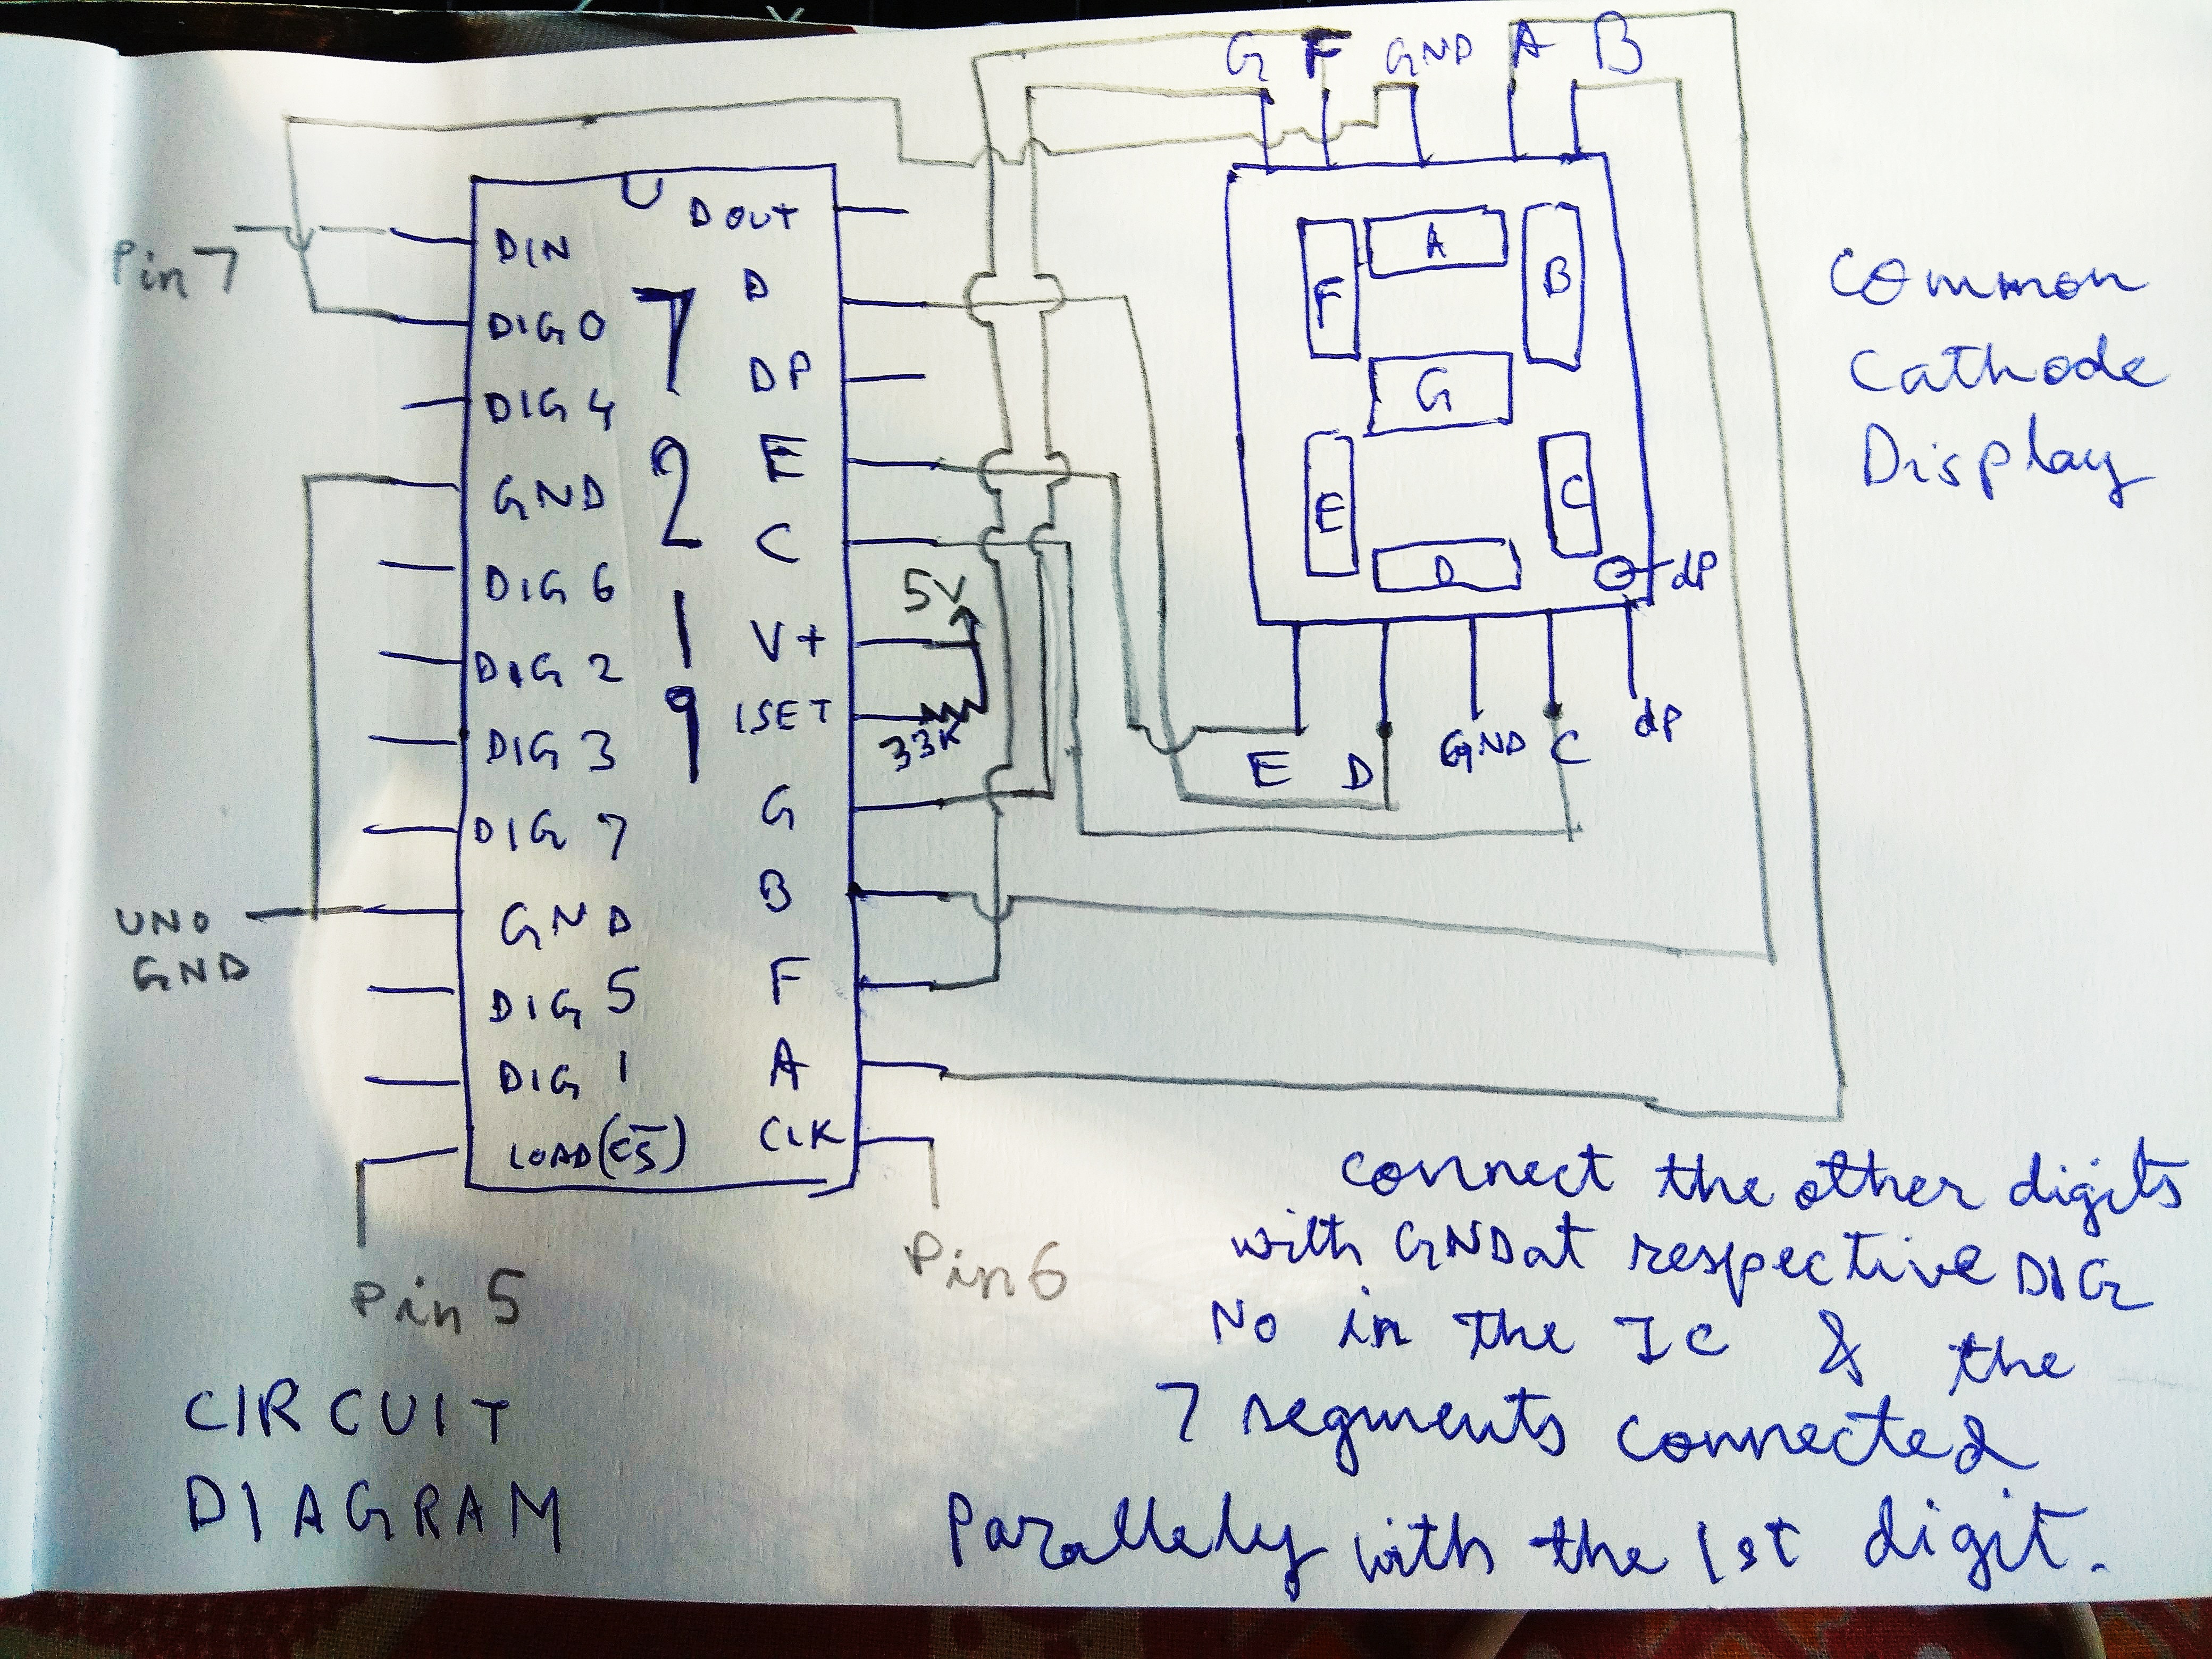 G F GND A B
DIN
DIG 0
DIG 4
GND
DIG 6
DIG 2
DIG 3
DIG 7
GND
DIG 5
DIG 1
LOAD (CS)
7
2
1
9
D OUT
D
DP
E
C
V+
ISET
G
B
F
A
CLK
Pin 7
UNO
GND
Pin 5
Pin 6
5V
33K
A
F
B
G
E
C
D
dP
E D GND C dP
Common
Cathode
Display
connect the other digits
with GND at respective DIG
No in the IC & the
7 segments connected
Parallely with the 1st digit.
CIRCUIT
DIAGRAM